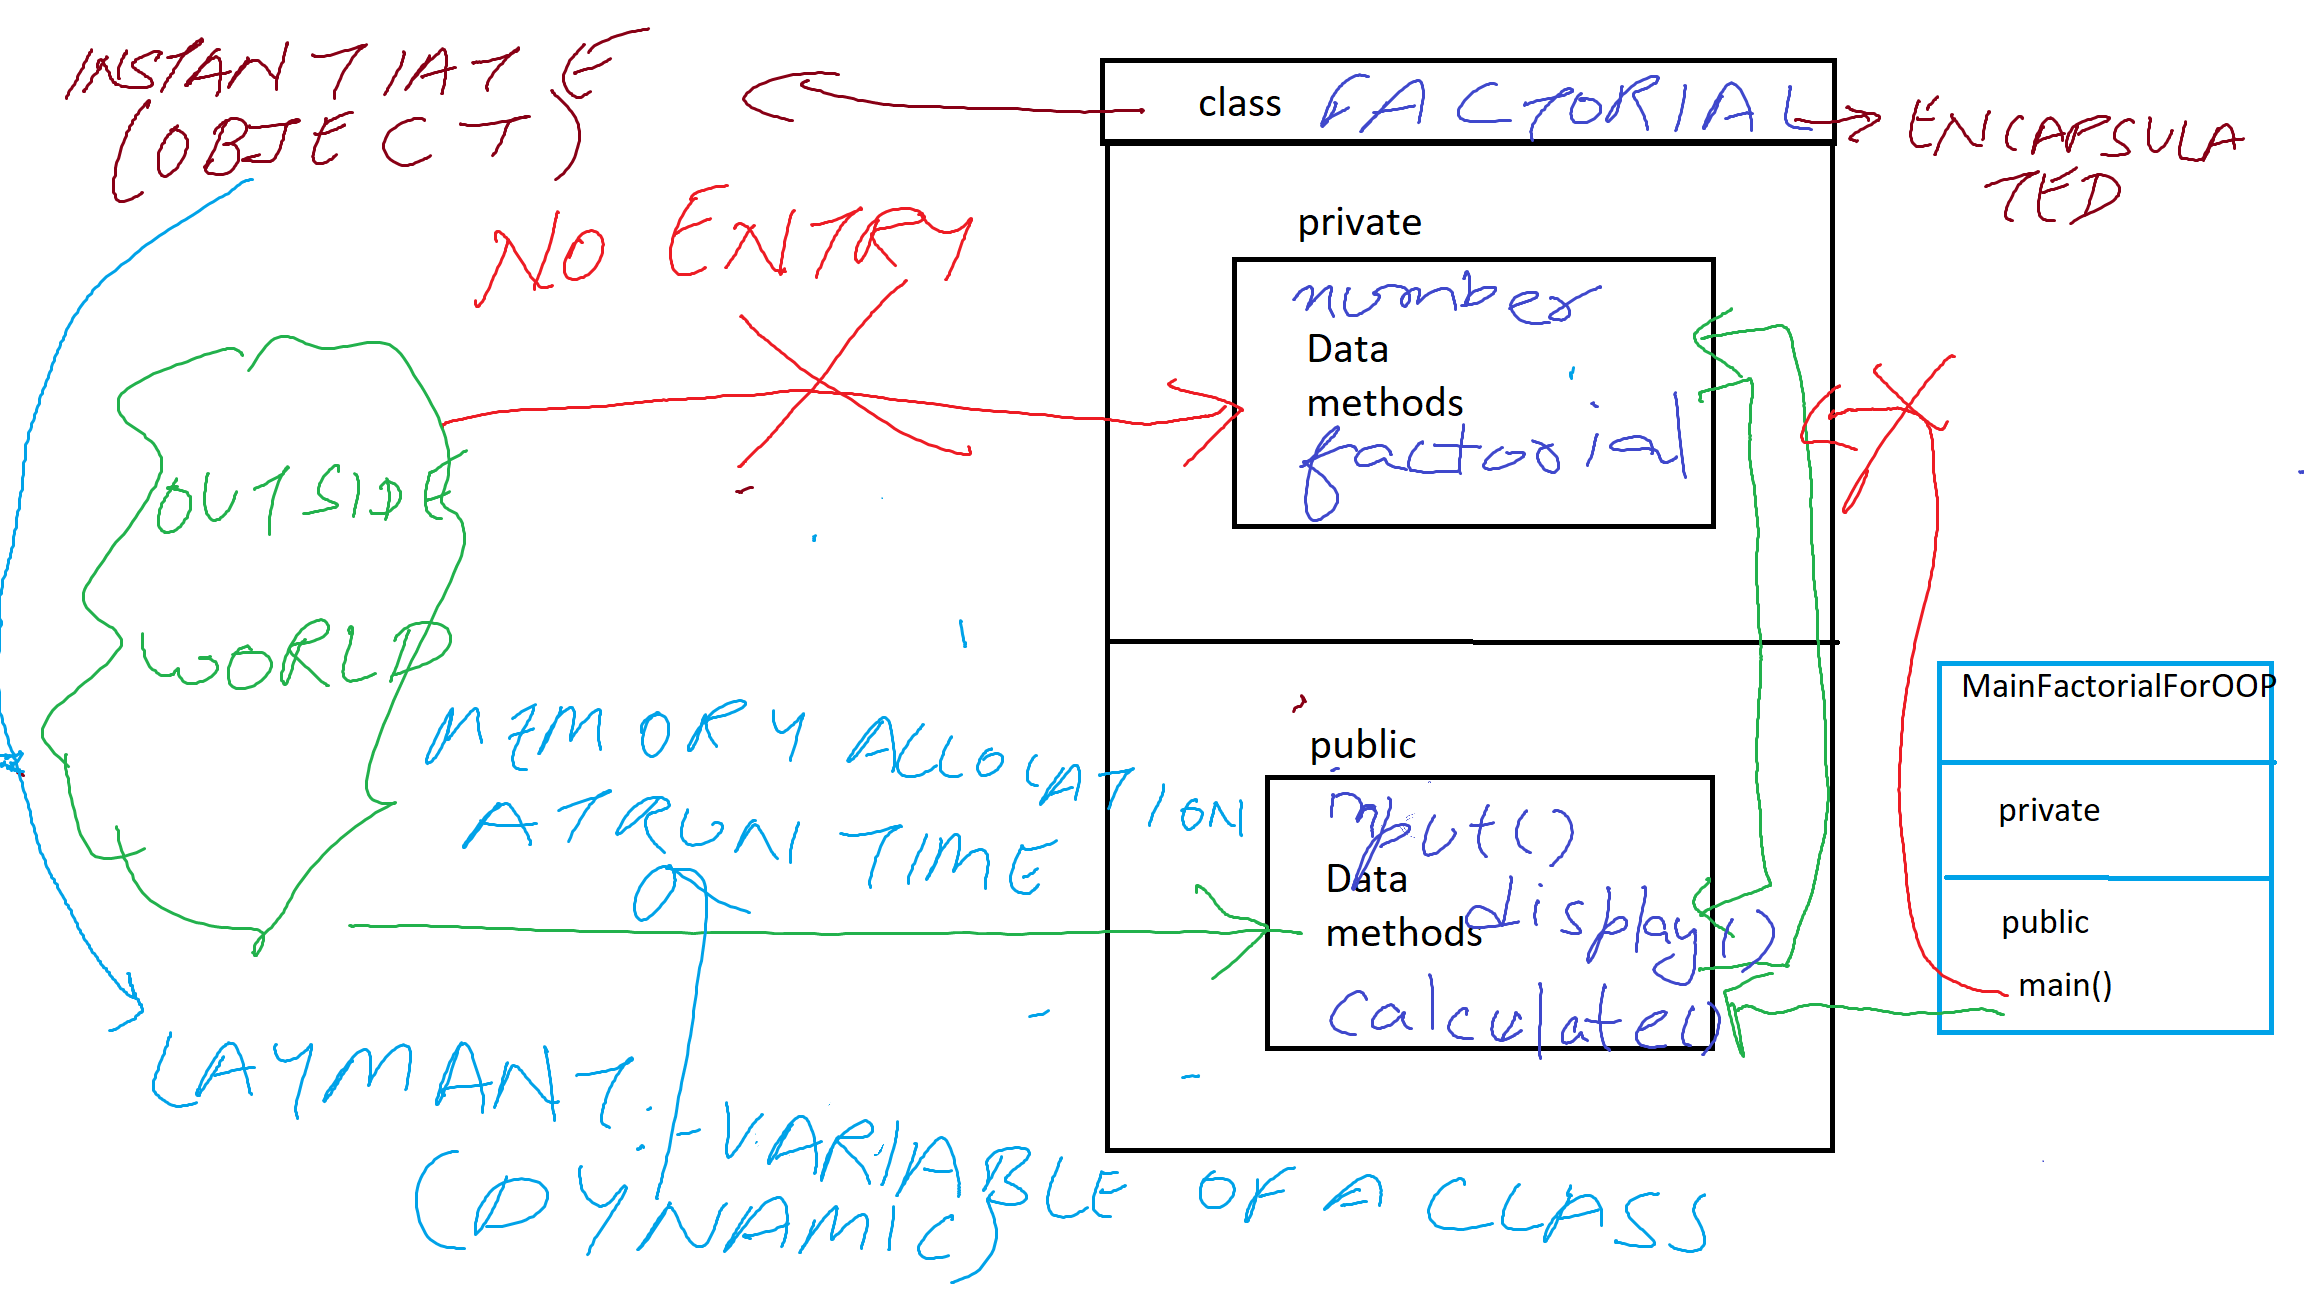 INSTANTIATE
(OBJECT)
class FACTORIAL
ENCAPSULA
TED
NO ENTRY
private
number
Data
methods
factorial
OUTSIDE
WORLD
MEMORY ALLOCATION
AT RUN TIME
public
input()
Data
display()
methods
calculate()
MainFactorialForOOP
private
public
main()
LAYMANT :- VARIABLE OF A CLASS
(DYNAMIC)